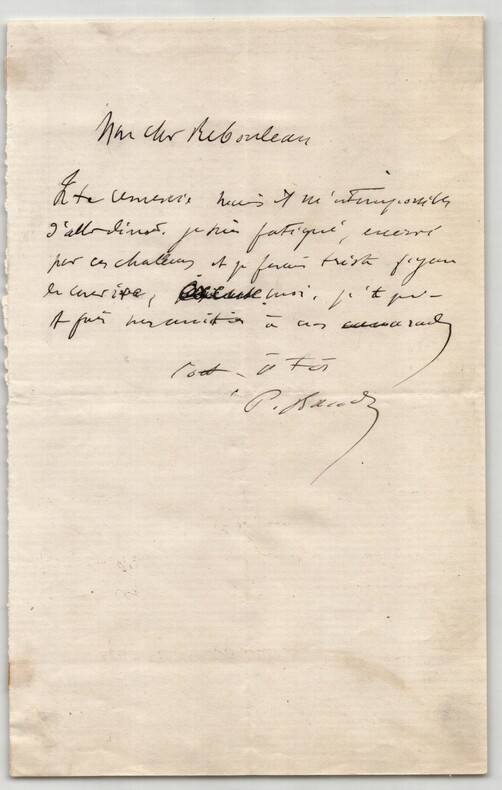 Mon cher Rebouleau
Je te remercie mais il m'est impossible
d'aller dîner. je suis fatigué, enervé
par ces chaleurs et je ferais triste figure
excuse moi, je t'
et fais mes amitiés à nos camarades
Tout à toi
P. Baudry